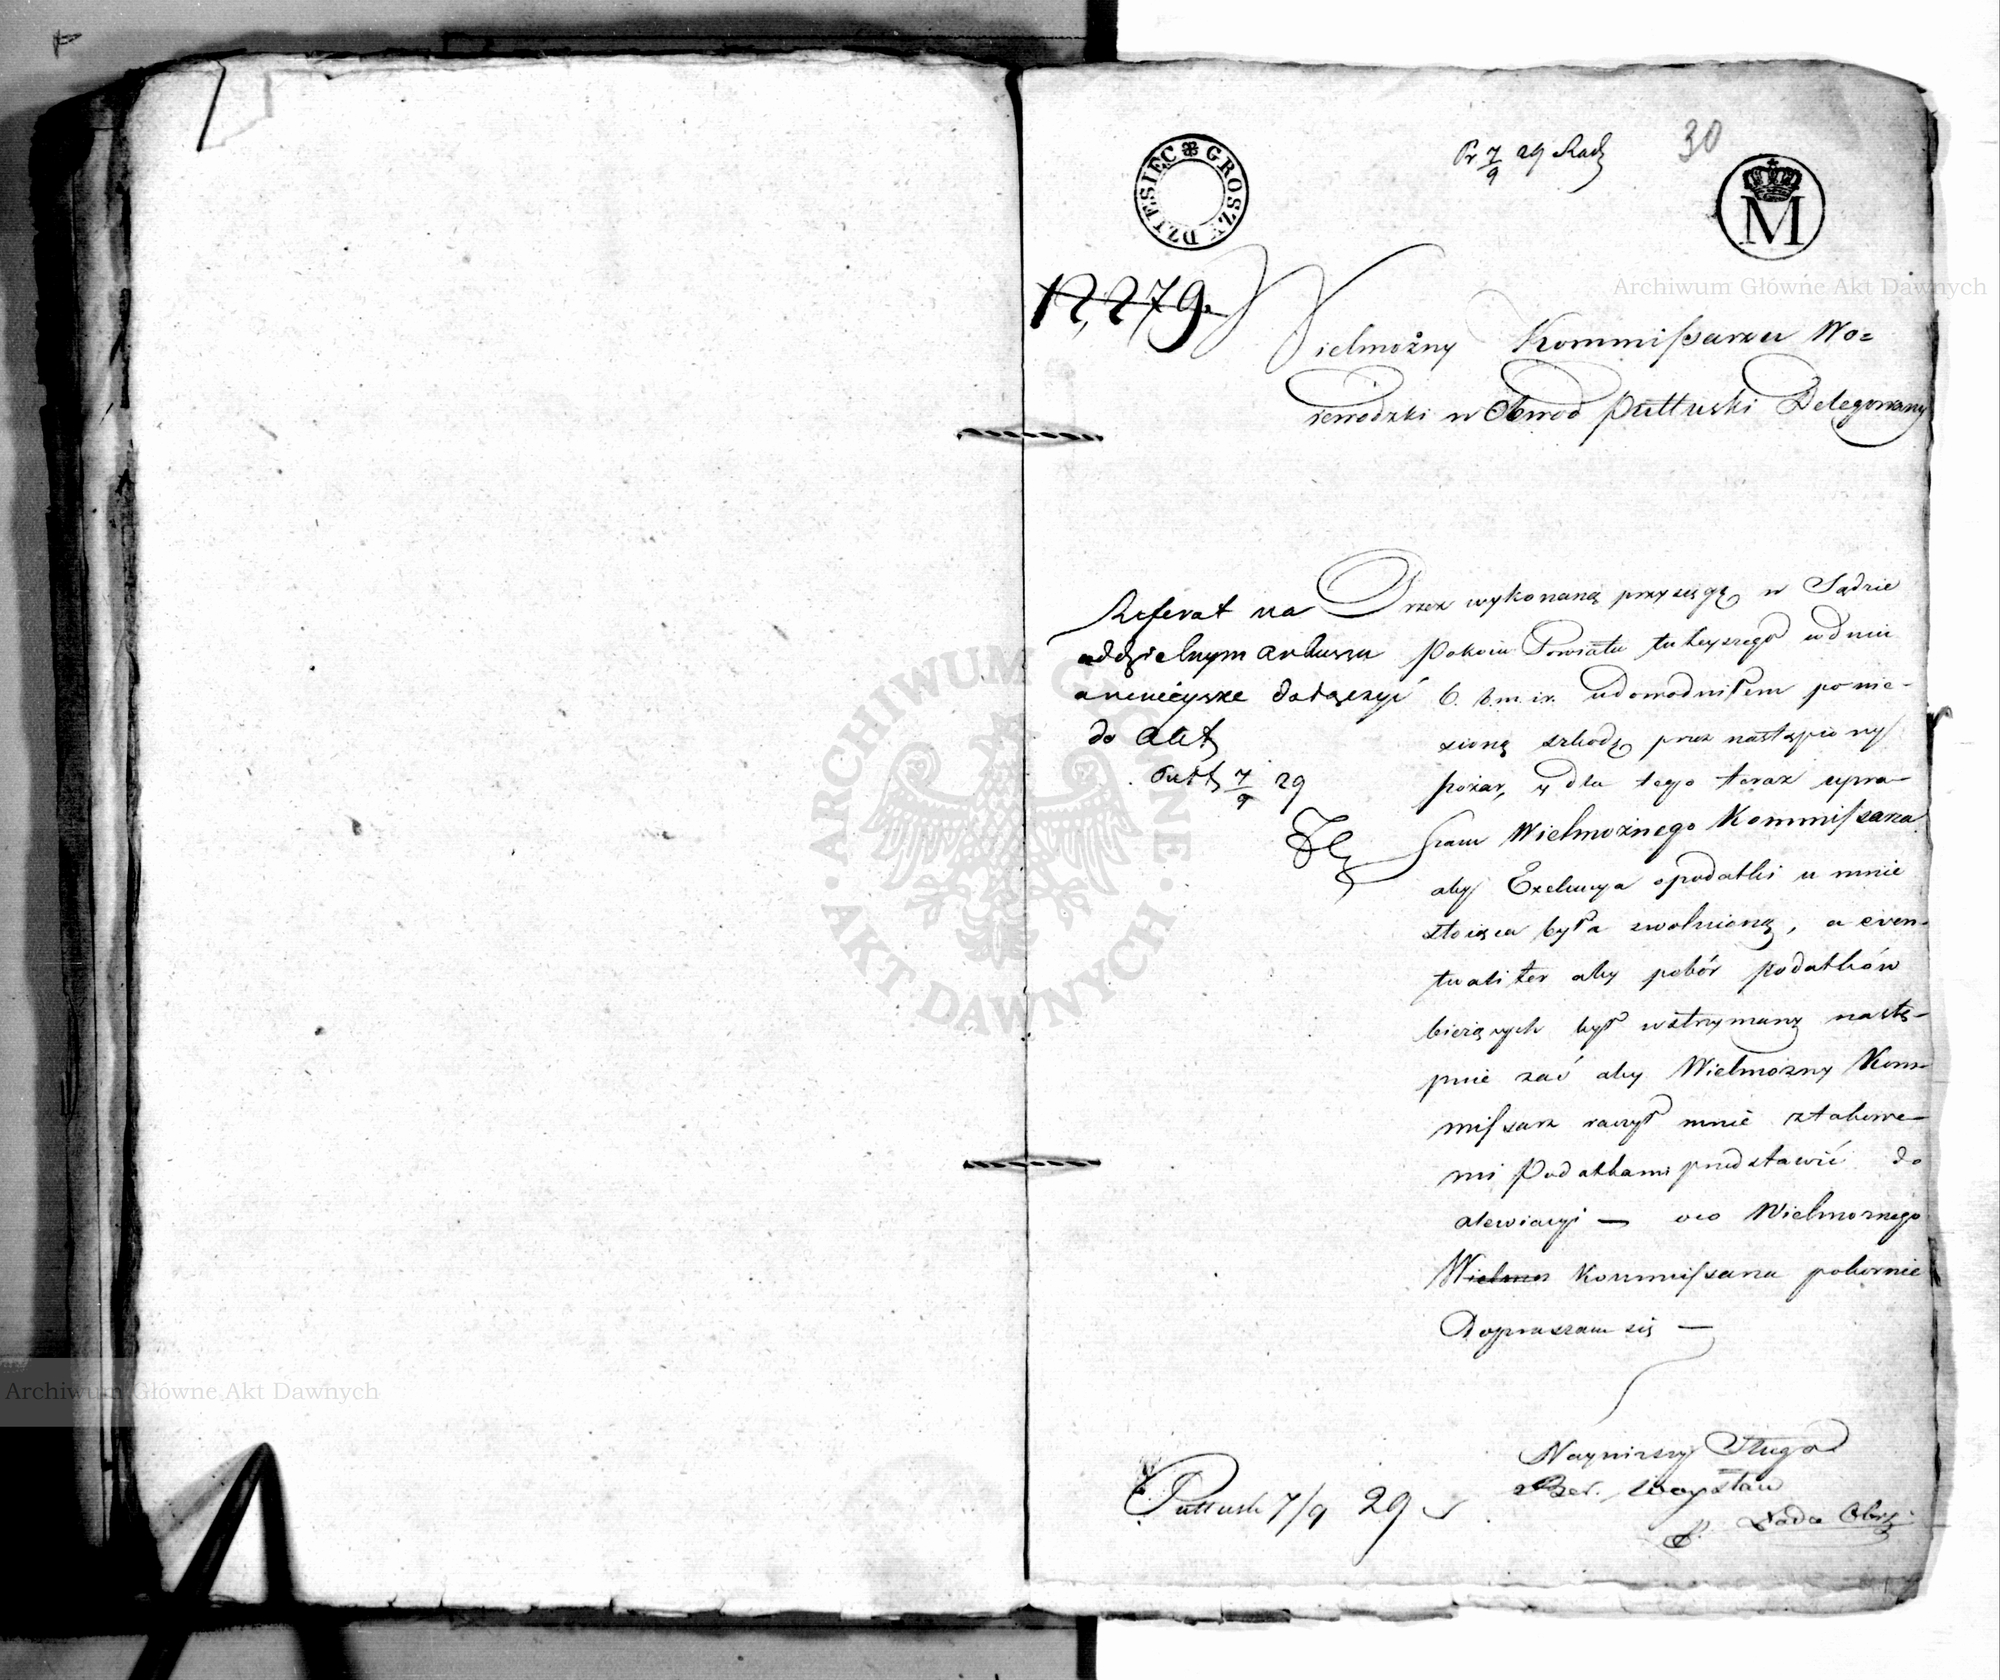 30
Pr 7/9 29 Radz
DZIESIĘC GROSZY
M
12,279.
Wielmożny Kommißarzu Wo=
iewodzki w Obwod Pułtuski Delegowany
Referat na
oddzielnym arkuszu
a ninieysze dołączyć
do Akt
Pułt 7/9 29
Przez wykonaną przysięgę w Sądzie
Pokoiu Powiatu tuteyszego w dniu
6. b.m. i r. udowodniłem ponie-
sioną szkodę przez nastąpiony
pożar, y dla tego teraz upra-
szam Wielmożnego Kommißarza
aby Exekucya o podatki u mnie
stoiąca była zwolnioną, a even-
tualiter aby pobór podatków
bieżących był wstrzymany nastę-
pnie zaś aby Wielmożny Kom-
mißarz raczył mnie z takowe-
mi Podatkami przedstawić do
alewiacyi — oco Wielmożnego
Wielmo Kommißarza pokornie
Dopraszam się —
Naynizszy Sługa
Pułtusk 7/9 29
Archiwum Główne Akt Dawnych
ARCHIWUM GŁÓWNE · AKT DAWNYCH ·
Archiwum Główne Akt Dawnych